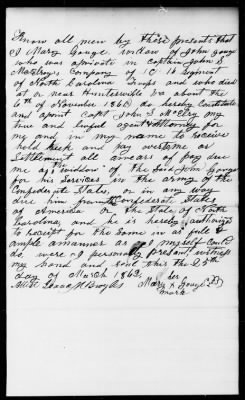 Know all men by these presents that
I Mary Gouge widow of John Gouge
who was a private in Captain John S
McElroys Company of C 16 Regiment
of North Carolina Troops and who died
at or near Huntersville Va about the
of November 1861 do hereby Constitute
and apoint Capt John S McElroy my
true and lawful agent & Attorney for
me and in my name to receive
hold keek and pay over to me or
Settlement all arrears of pay due
me as the widdow of the said John Gouge
for his Services in the army of the
Confederate States, or in any way
due him from the Confederate States
of America or the State of North
Carolina and he is hereby authorized
to receipt for the Same in as full &
ample a manner as I myself Could
do were I personally Present, witness
my hand and seal this the 25th
day of March 1862. her
Attest Isaac H Broyles Mary X Gouge
mark